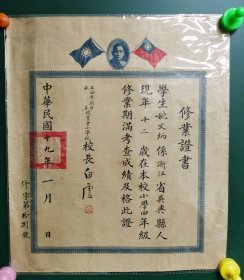 修業證書
學生姚文炳係浙江省吳興縣人
現年十二歲在本校小學四年級
修業期滿考查成績及格此證
校長白
中華民國十九年一月 日
修字第拾捌號